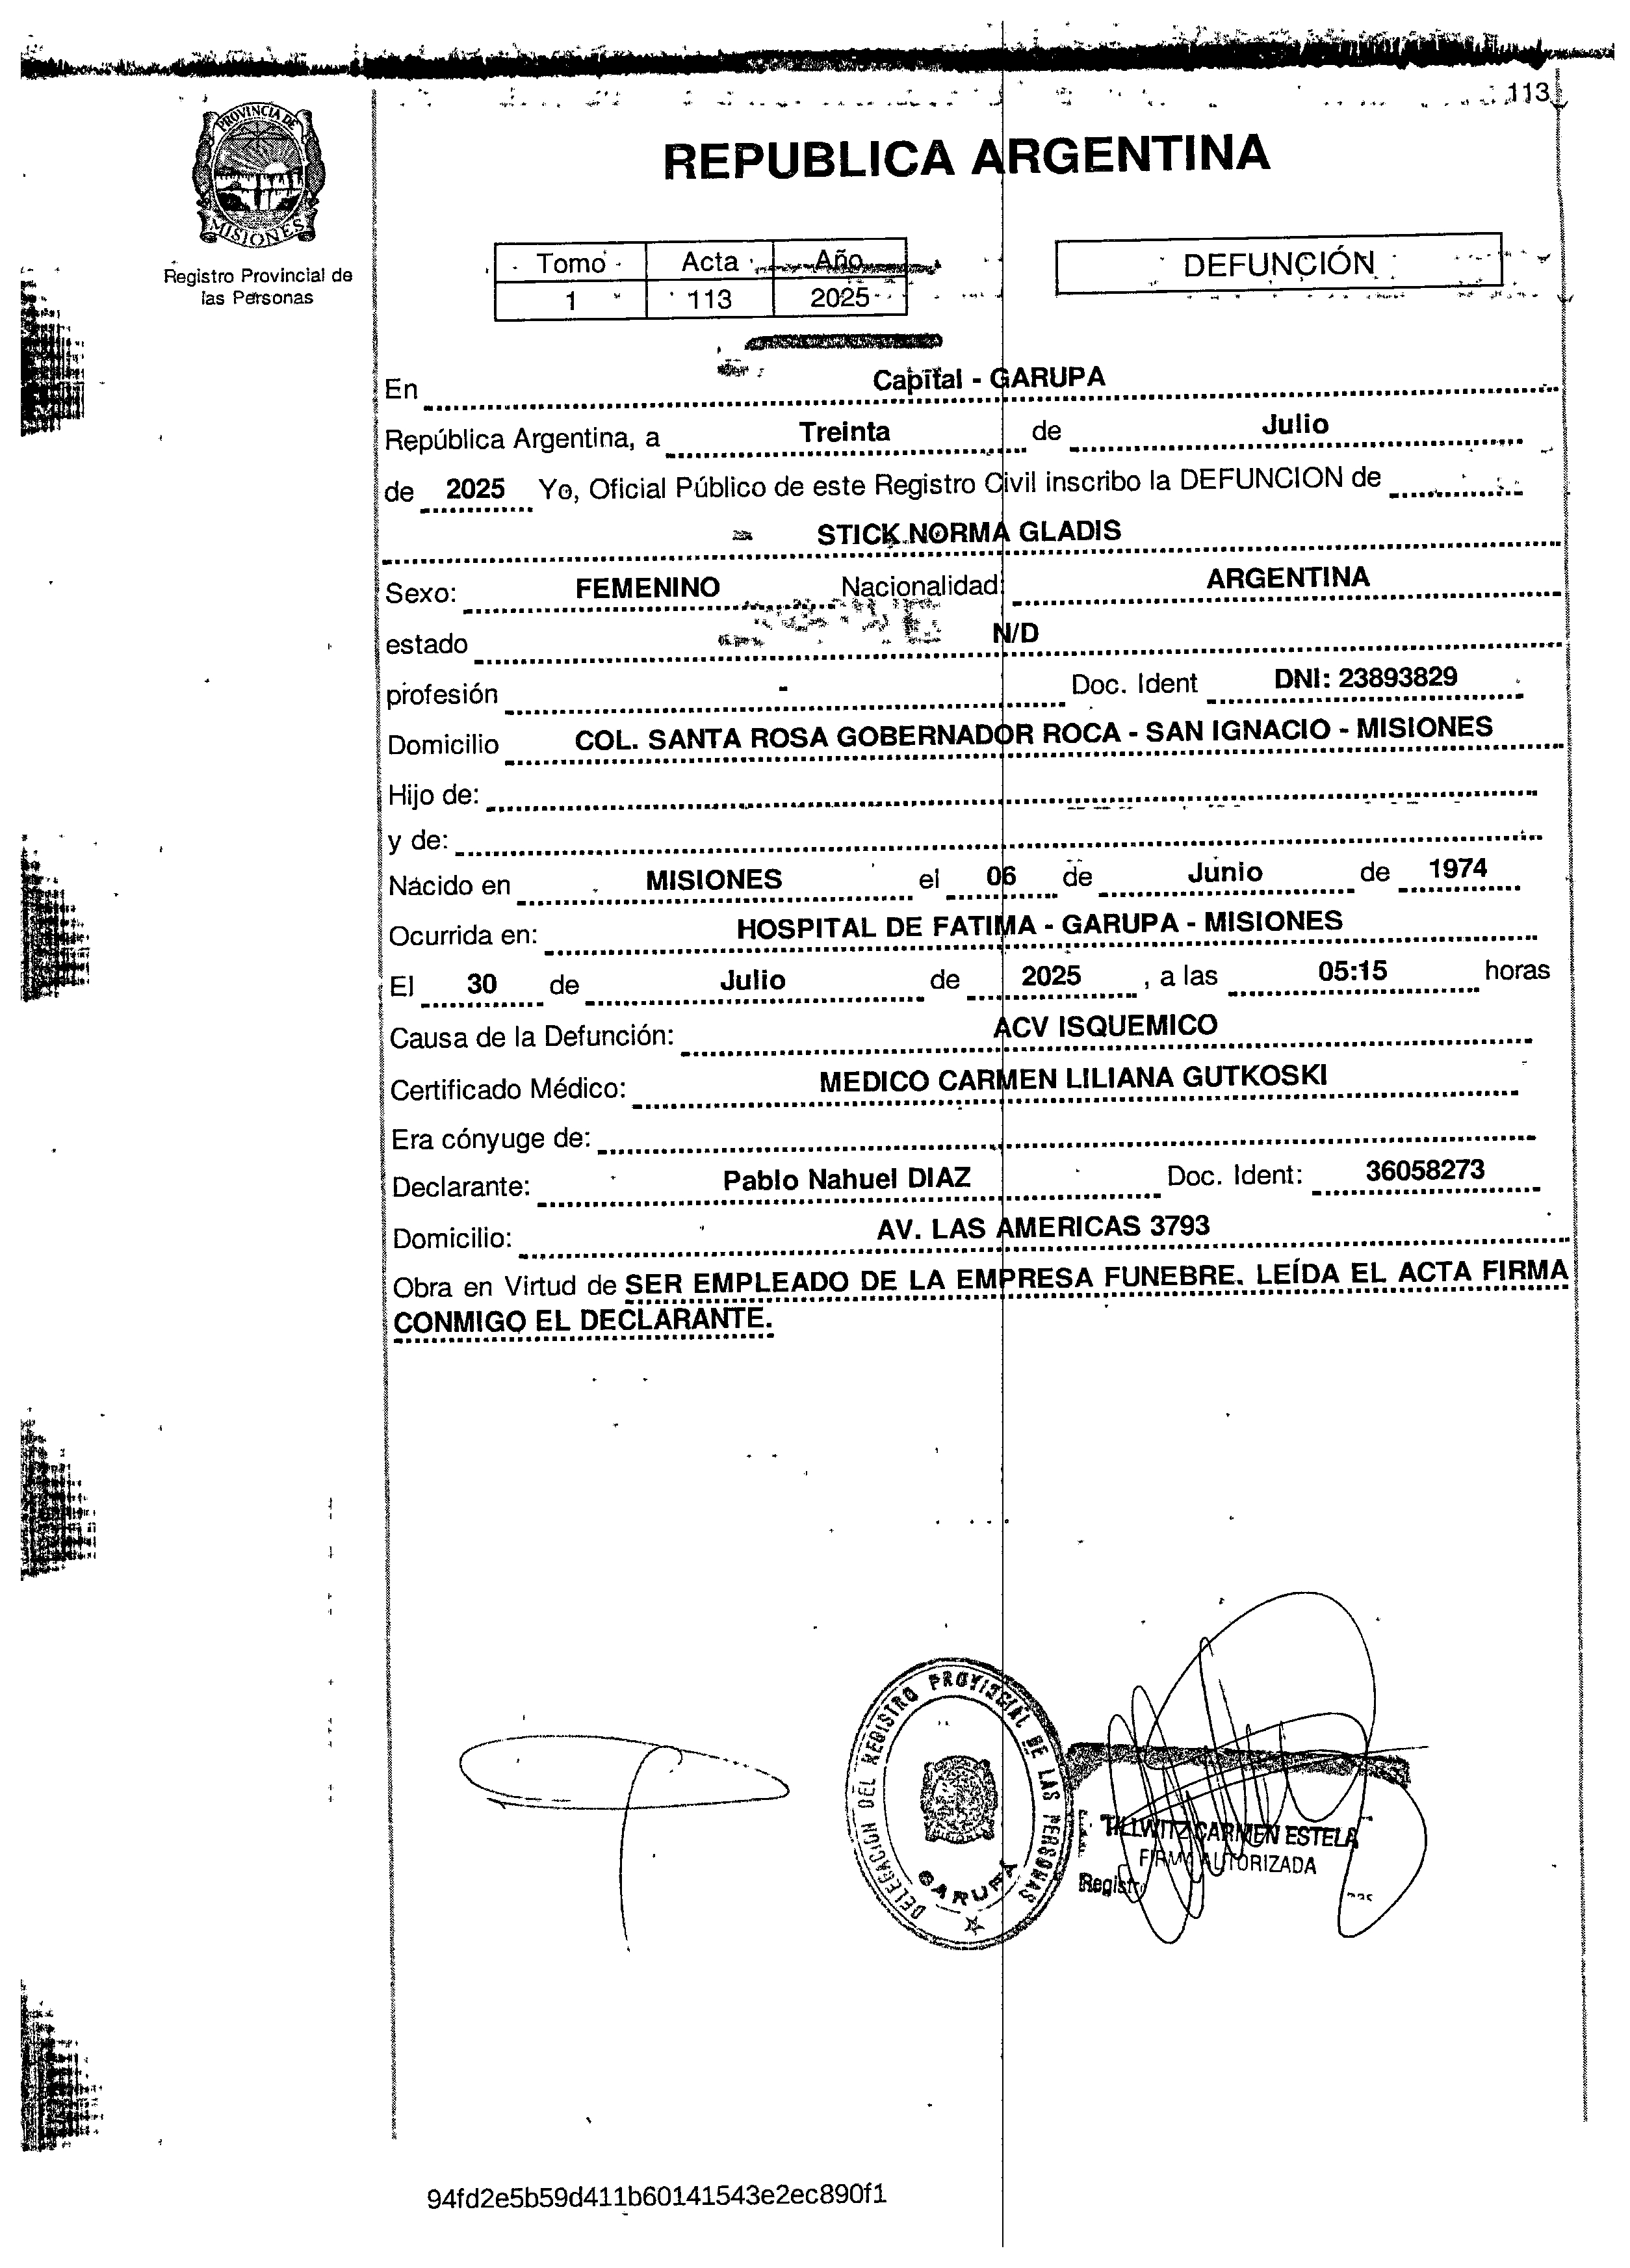 113
PROVINCIA DE
MISIONES
Registro Provincial de
las Personas
REPUBLICA ARGENTINA
Tomo Acta Año
1 113 2025
DEFUNCIÓN
En Capital - GARUPA
República Argentina, a Treinta de Julio
de 2025 Yo, Oficial Público de este Registro Civil inscribo la DEFUNCION de
STICK NORMA GLADIS
Sexo: FEMENINO Nacionalidad: ARGENTINA
estado N/D
profesión - Doc. Ident DNI: 23893829
Domicilio COL. SANTA ROSA GOBERNADOR ROCA - SAN IGNACIO - MISIONES
Hijo de:
y de:
Nacido en MISIONES el 06 de Junio de 1974
Ocurrida en: HOSPITAL DE FATIMA - GARUPA - MISIONES
El 30 de Julio de 2025 , a las 05:15 horas
Causa de la Defunción: ACV ISQUEMICO
Certificado Médico: MEDICO CARMEN LILIANA GUTKOSKI
Era cónyuge de:
Declarante: Pablo Nahuel DIAZ Doc. Ident: 36058273
Domicilio: AV. LAS AMERICAS 3793
Obra en Virtud de SER EMPLEADO DE LA EMPRESA FUNEBRE. LEÍDA EL ACTA FIRMA
CONMIGO EL DECLARANTE.
DELEGACION DEL REGISTRO PROVINCIAL DE LAS PERSONAS
GARUPA
TILLWITZ CARMEN ESTELA
FIRMA AUTORIZADA
94fd2e5b59d411b60141543e2ec890f1